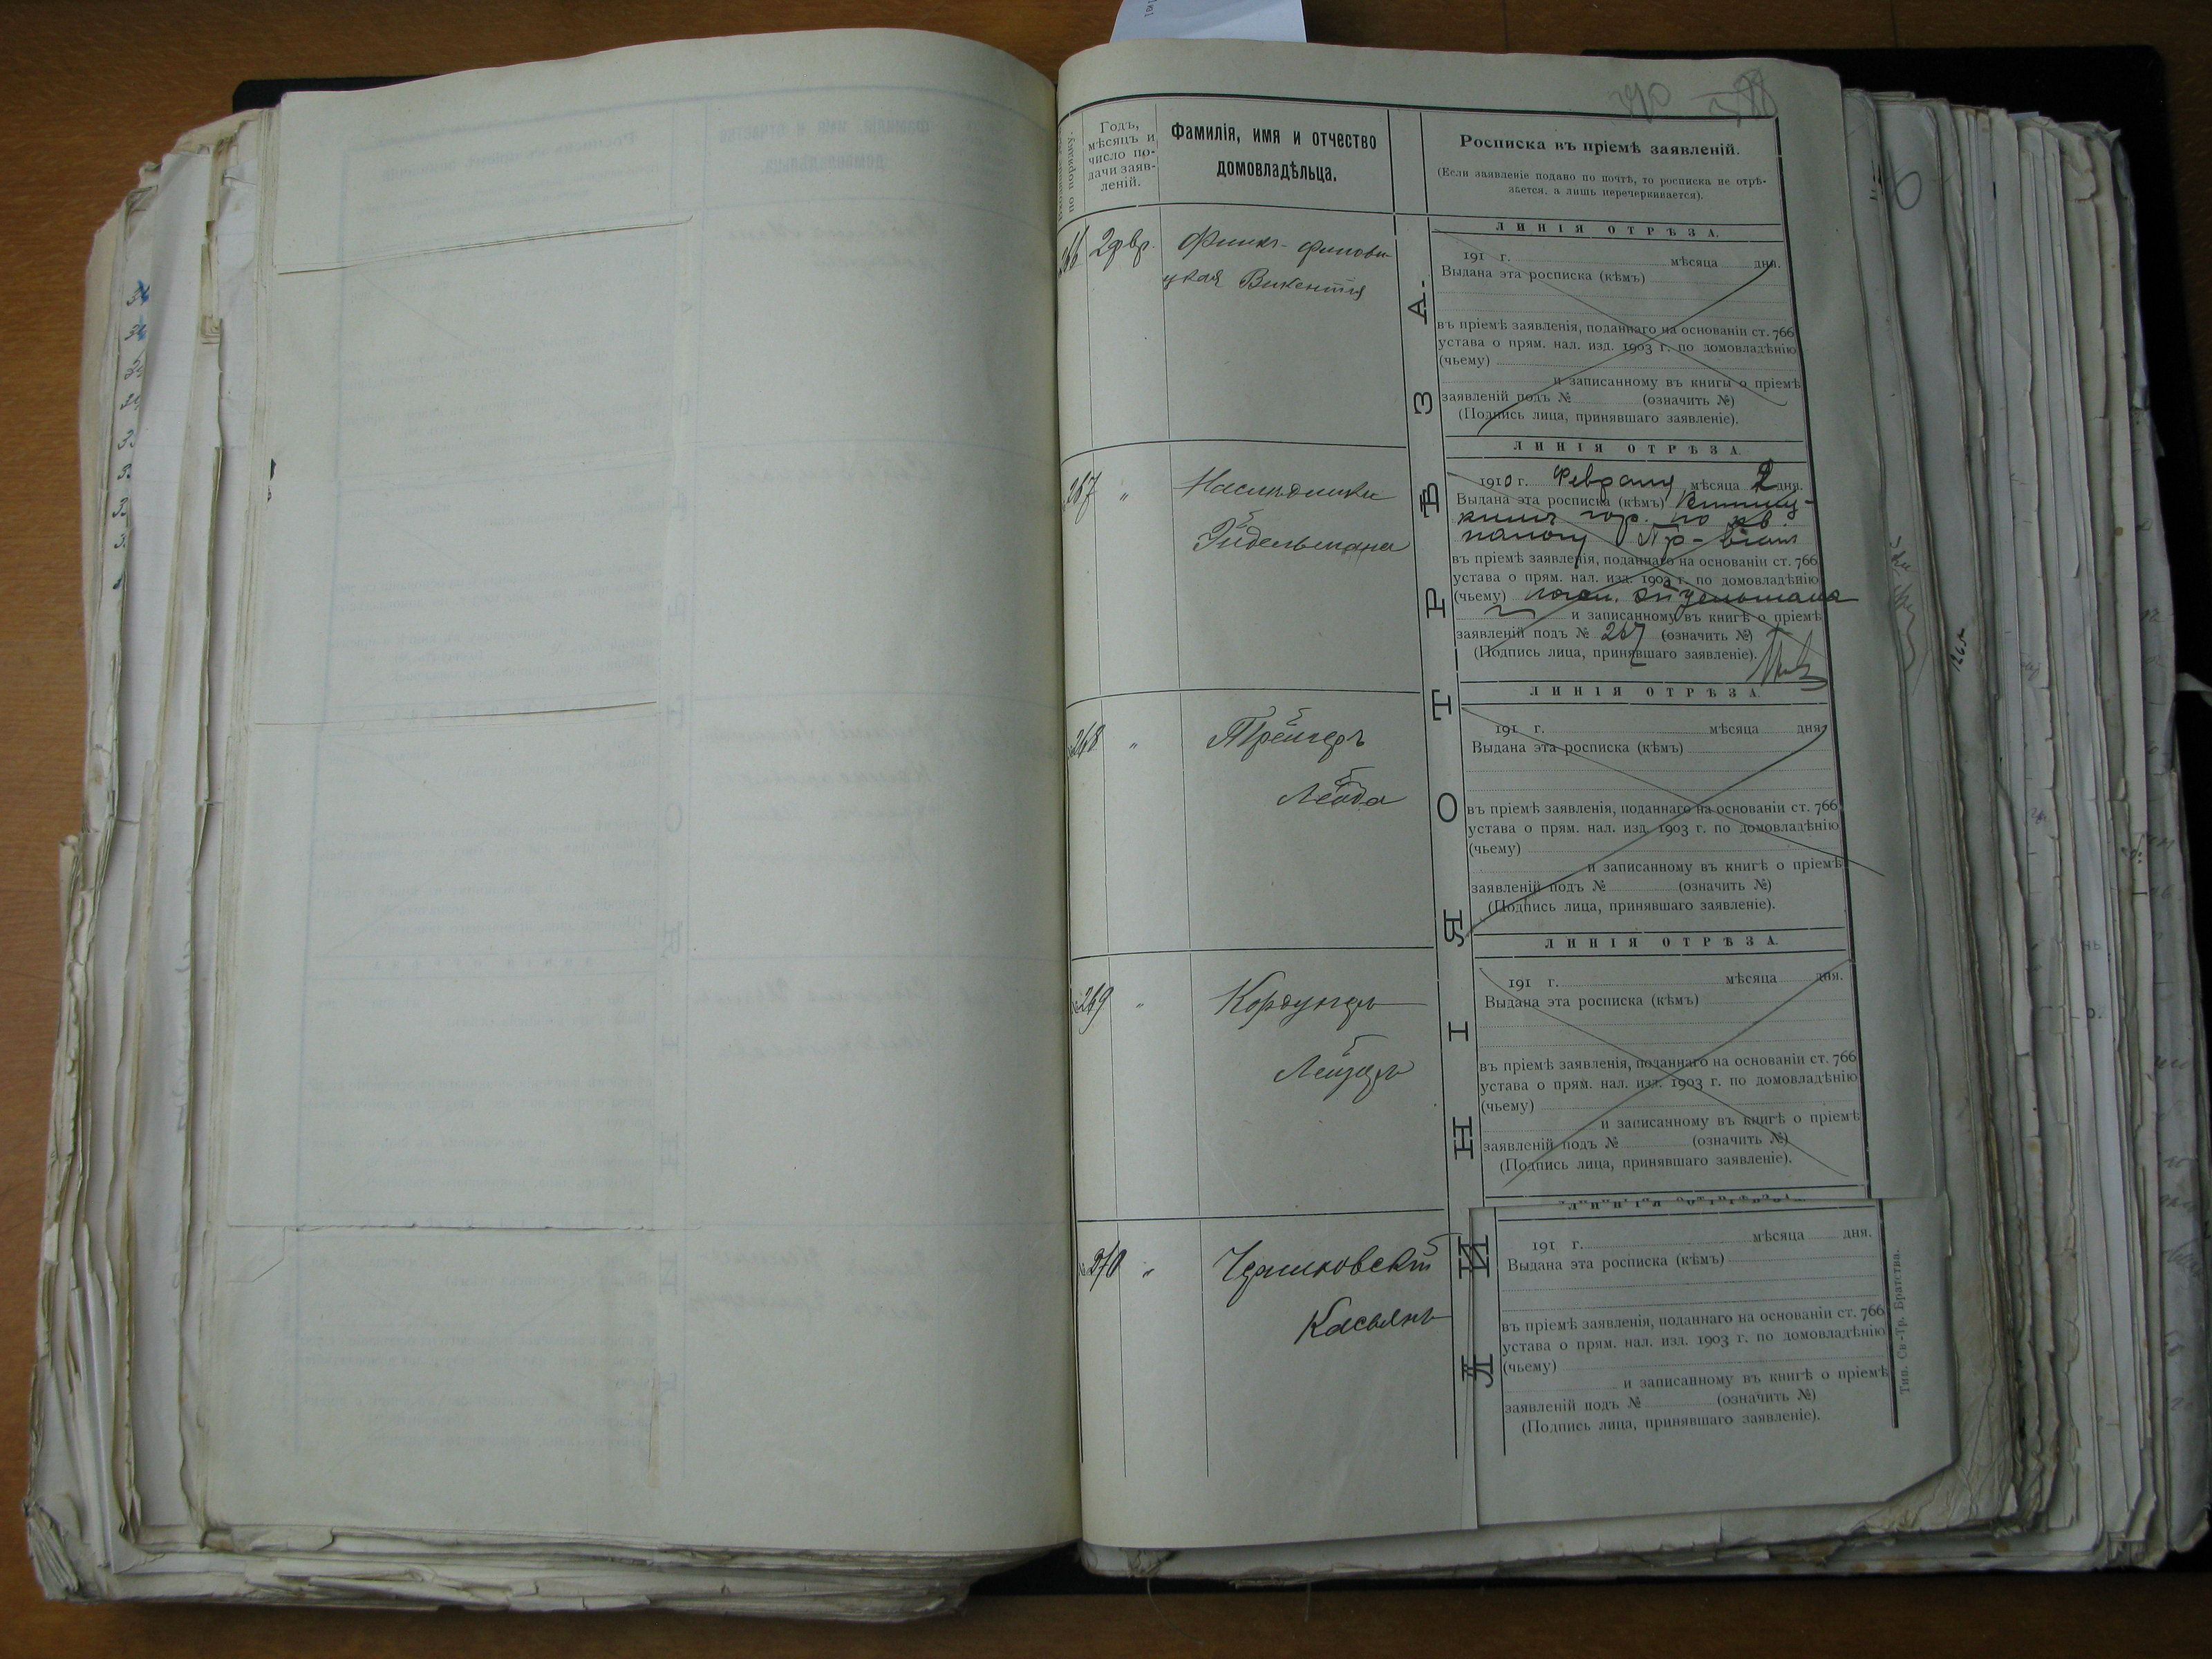 по порядку.
Годъ,
мѣсяцъ и
число по-
дачи заяв-
леній.
Фамилія, имя и отчество
домовладѣльца.
Росписка въ пріемѣ заявленій.
(Если заявленіе подано по почтѣ, то росписка не отрѣ-
зается, а лишь перечеркивается).
ЛИНІЯ ОТРѢЗА.
266 2 фвр. Финкъ-
цкая Викентія
191 г. мѣсяца дня.
Выдана эта росписка (кѣмъ)
въ пріемѣ заявленія, поданнаго на основаніи ст. 766
устава о прям. нал. изд. 1903 г. по домовладѣнію
(чьему)
и записанному въ книгы о пріемѣ
заявленій подъ № (означить №)
(Подпись лица, принявшаго заявленіе).
ЛИНІЯ ОТРѢЗА.
267 " Наслѣдники
Эйдельмана
1910 г. Февраля мѣсяца 2 дня.
Выдана эта росписка (кѣмъ) Винниц-
кимъ гор. по кв.
налогу Пр-віемъ
въ пріемѣ заявленія, поданнаго на основаніи ст. 766
устава о прям. нал. изд. 1903 г. по домовладѣнію
(чьему) насл. Эйдельмана
и записанному въ книгѣ о пріемѣ
заявленій подъ № 267 (означить №)
(Подпись лица, принявшаго заявленіе).
ЛИНІЯ ОТРѢЗА.
268 " Трейгеръ
Лейба
191 г. мѣсяца дня.
Выдана эта росписка (кѣмъ)
въ пріемѣ заявленія, поданнаго на основаніи ст. 766
устава о прям. нал. изд. 1903 г. по домовладѣнію
(чьему)
и записанному въ книгѣ о пріемѣ
заявленій подъ № (означить №)
(Подпись лица, принявшаго заявленіе).
ЛИНІЯ ОТРѢЗА.
№269 " Кордунеръ
Лейзеръ
191 г. мѣсяца дня.
Выдана эта росписка (кѣмъ)
въ пріемѣ заявленія, поданнаго на основаніи ст. 766
устава о прям. нал. изд. 1903 г. по домовладѣнію
(чьему)
и записанному въ книгѣ о пріемѣ
заявленій подъ № (означить №)
(Подпись лица, принявшаго заявленіе).
№270 "
Касьянъ
191 г. мѣсяца дня.
Выдана эта росписка (кѣмъ)
въ пріемѣ заявленія, поданнаго на основаніи ст. 766
устава о прям. нал. изд. 1903 г. по домовладѣнію
(чьему)
и записанному въ книгѣ о пріемѣ
заявленій подъ № (означить №)
(Подпись лица, принявшаго заявленіе).
ЛИНІЯ ОТРѢЗА.
Тип. Св.-Тр. Братства.